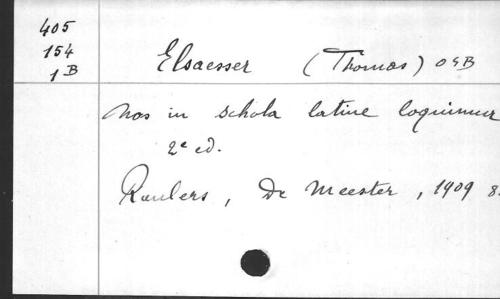 405
154
1 B
Elsaesser (Thomas) OSB
Nos in schola latine loquimur
2e ed.
Roulers, De Meester, 1909 8